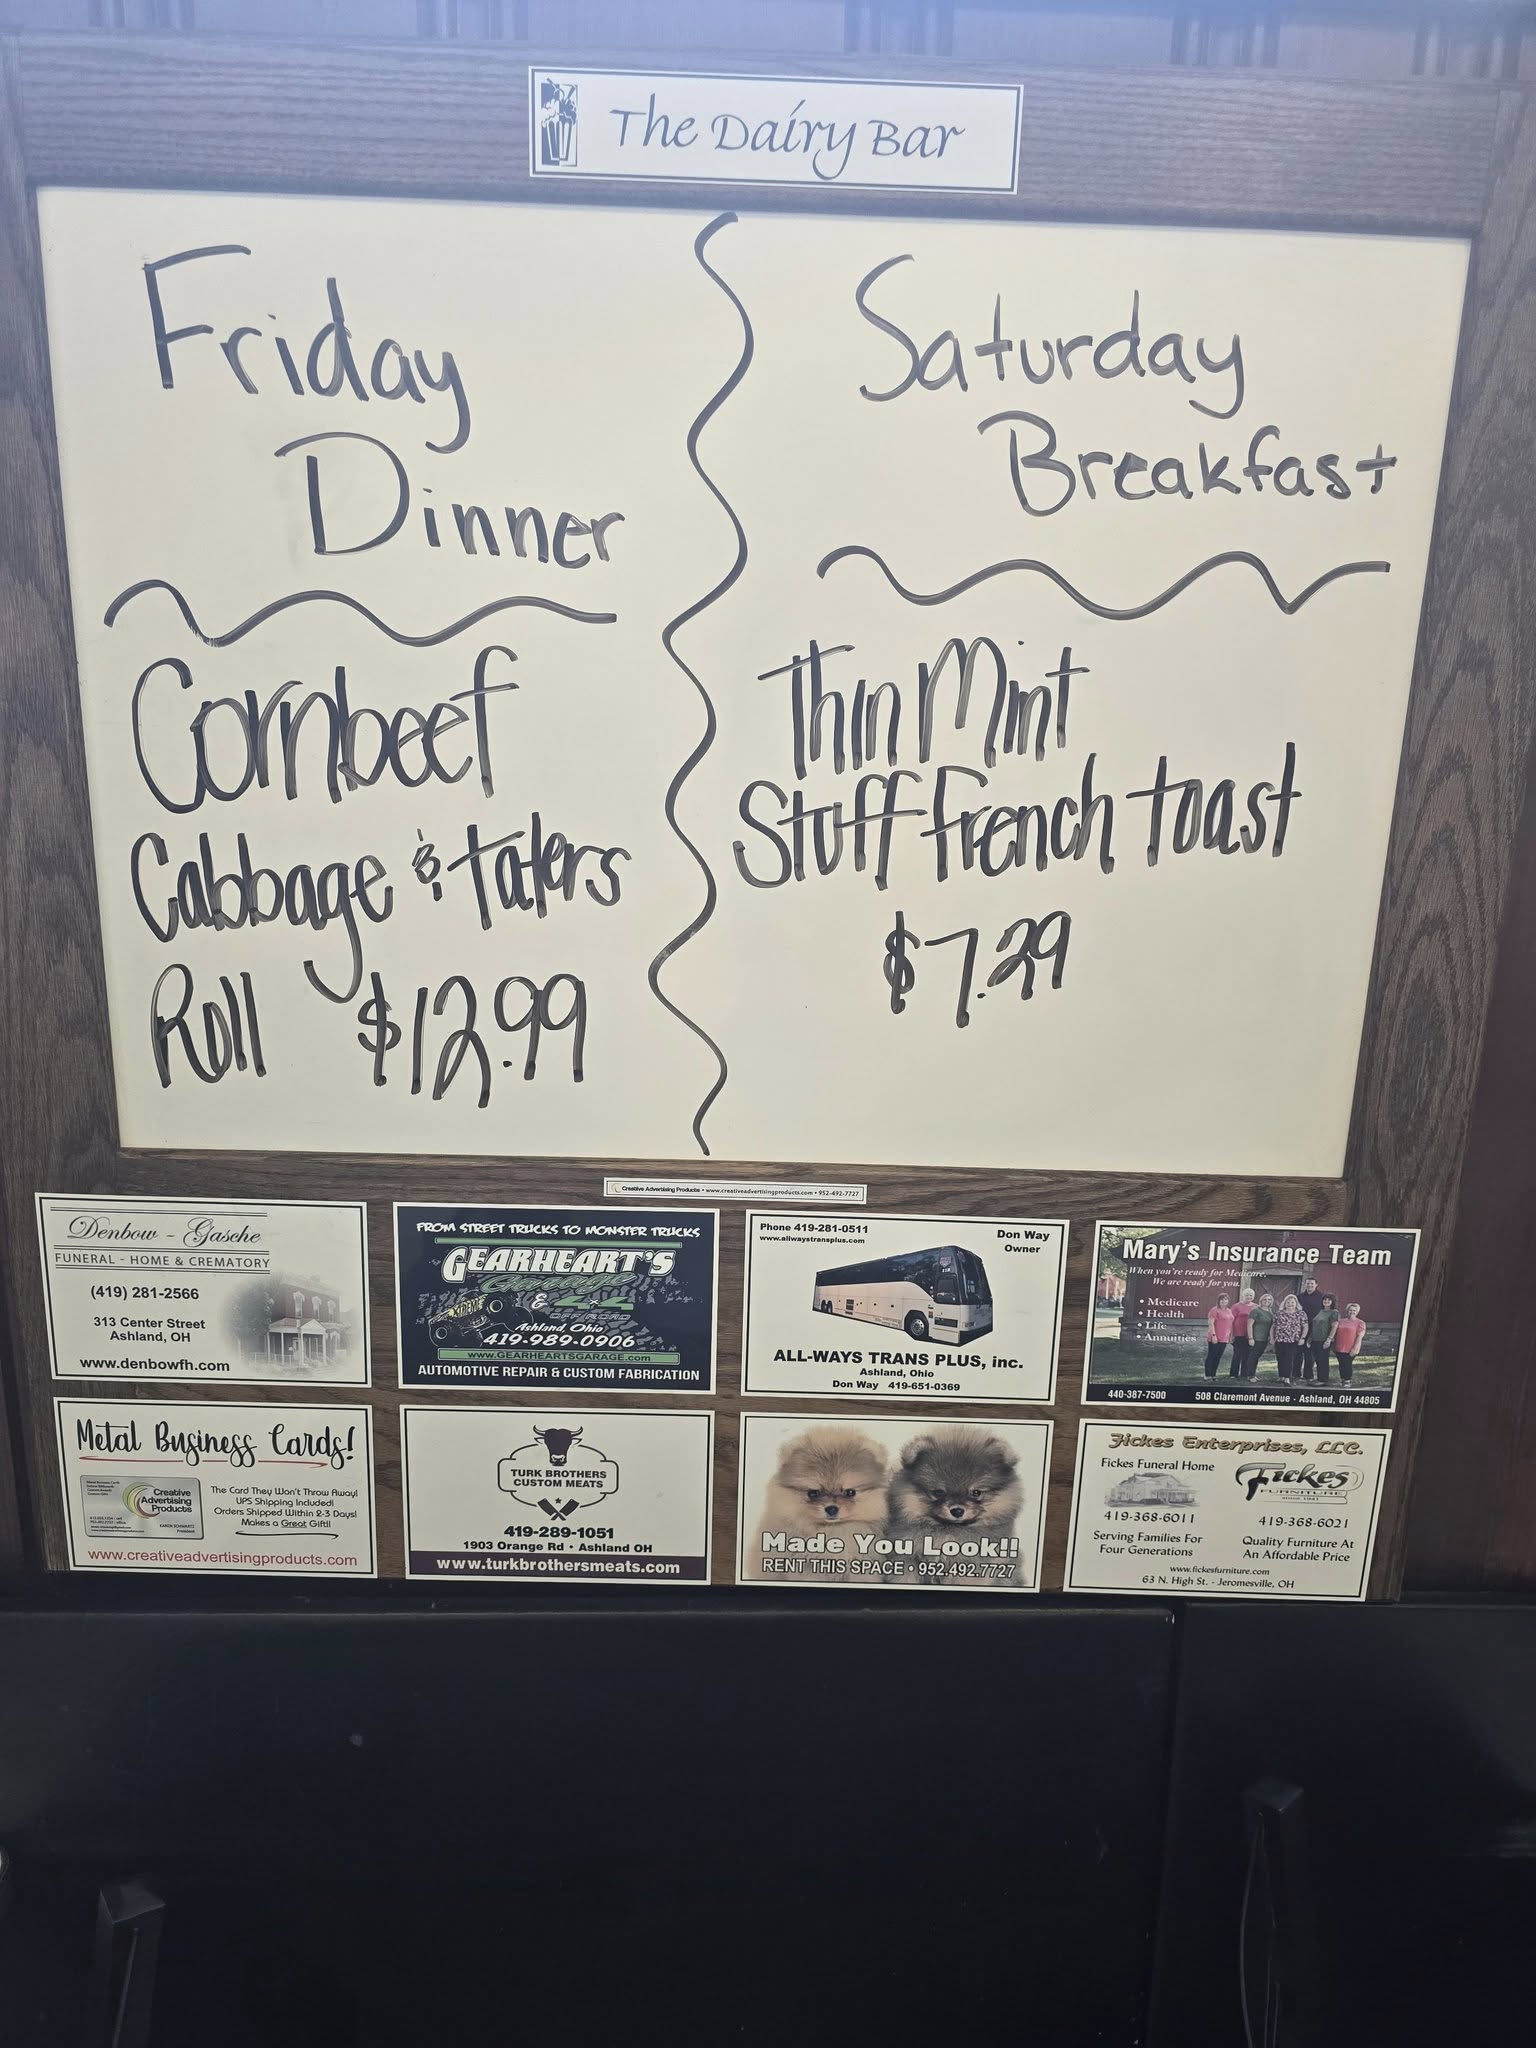 The Dairy Bar
Friday
Dinner
Cornbeef
Cabbage & taters
Roll $12.99
Saturday
Breakfast
Thin Mint
Stuff French toast
$7.29
Creative Advertising Products • www.creativeadvertisingproducts.com • 952-492-7727
Denbow - Gasche
FUNERAL - HOME & CREMATORY
(419) 281-2566
313 Center Street
Ashland, OH
www.denbowfh.com
FROM STREET TRUCKS TO MONSTER TRUCKS
GEARHEART'S
Garage
& 4x4
OFF ROAD
Ashland, Ohio
419-989-0906
WWW.GEARHEARTSGARAGE.com
AUTOMOTIVE REPAIR & CUSTOM FABRICATION
Phone 419-281-0511
www.allwaystransplus.com
Don Way
Owner
ALL-WAYS TRANS PLUS, inc.
Ashland, Ohio
Don Way 419-651-0369
Mary's Insurance Team
When you're ready for Medicare,
We are ready for you.
• Medicare
• Health
• Life
• Annuities
440-387-7500 508 Claremont Avenue - Ashland, OH 44805
Metal Business Cards!
Creative
Advertising
Products
KAREN SCHWARTZ
President
The Card They Won't Throw Away!
UPS Shipping Included!
Orders Shipped Within 2-3 Days!
Makes a Great Gift!!
www.creativeadvertisingproducts.com
TURK BROTHERS
CUSTOM MEATS
419-289-1051
1903 Orange Rd • Ashland OH
www.turkbrothersmeats.com
Made You Look!!
RENT THIS SPACE • 952.492.7727
Fickes Enterprises, LLC.
Fickes Funeral Home
419-368-6011
Serving Families For
Four Generations
Fickes
FURNITURE
since 1941
419-368-6021
Quality Furniture At
An Affordable Price
www.fickesfurniture.com
63 N. High St. - Jeromesville, OH